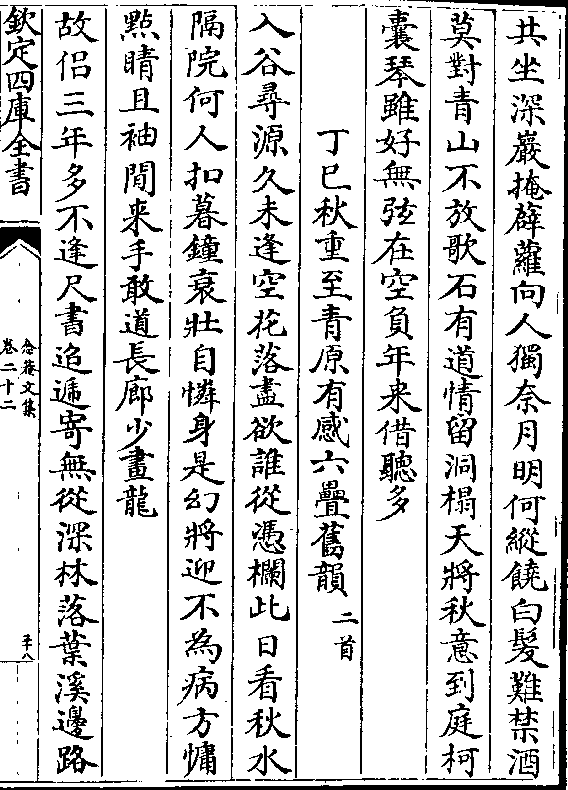 共坐深巖掩薜蘿向人獨奈月明何縱饒白髮難禁酒
莫對青山不放歌石有道情留洞榻天將秋意到庭柯
囊琴雖好無弦在空負年來借聽多
丁巳秋重至青原有感六疊舊韻二首
入谷尋源久未逢空花落盡欲誰從憑欄此日看秋水
隔院何人扣暮鐘衰壯自憐身是幻將迎不為病方慵
點睛且袖閒来手敢道長廊少畫龍
故侣三年多不逢尺書迢遞寄無從深林落葉溪邊路
欽定四庫全書
念菴文集
卷二十二